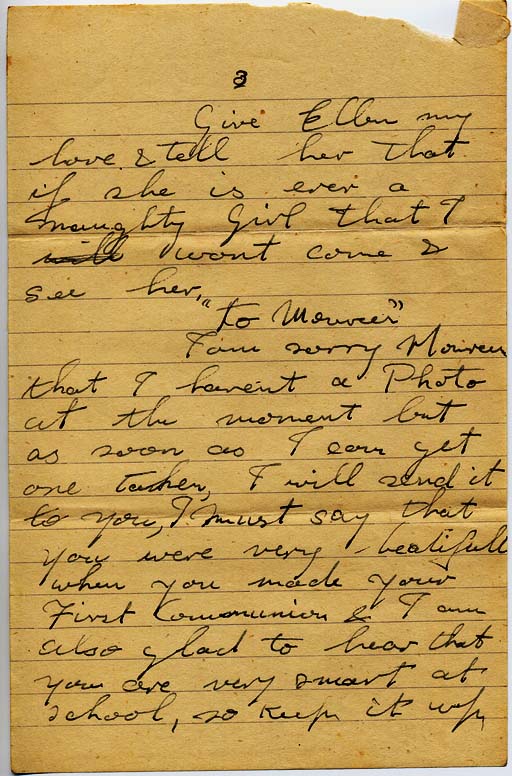 3
Give Ellen my
love & tell her that
if she is ever a
naughty Girl that I
will wont come &
see her.
"to Moureen"
I am sorry Moureen
that I havent a Photo
at the moment but
as soon as I can get
one taken, I will send it
to you, I must say that
you were very beatifull
when you made your
First Communion & I am
also glad to hear that
you are very smart at
school, so keep it up,